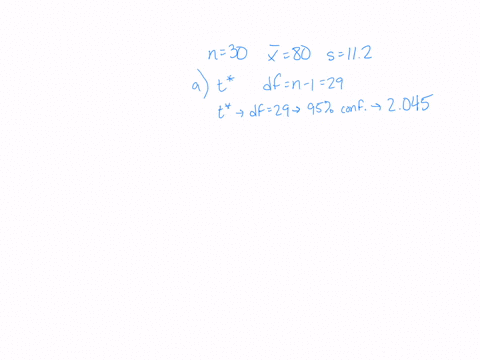 n=30 x̄=80 s=11.2
a) t* df=n-1=29
t* → df=29 → 95% conf. → 2.045